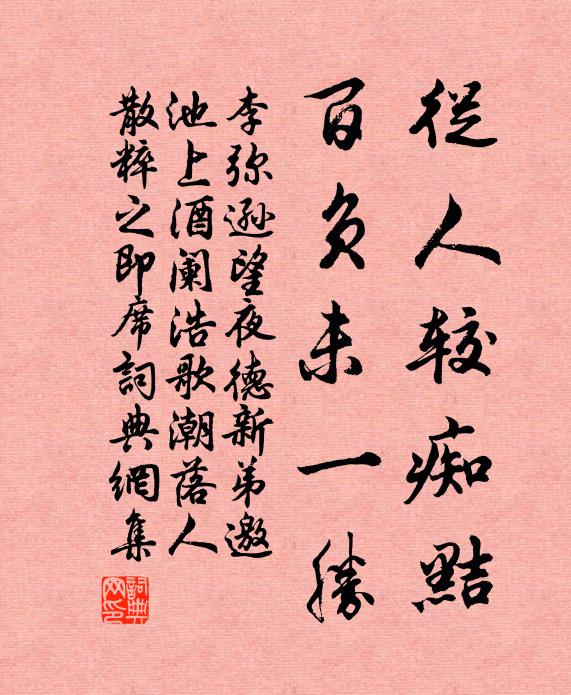 從人較痴黠
百負未一勝
李弥遜望夜德新弟邀
池上酒阑浩歌潮落人
散粹之即席詞典網集
詞典
网印